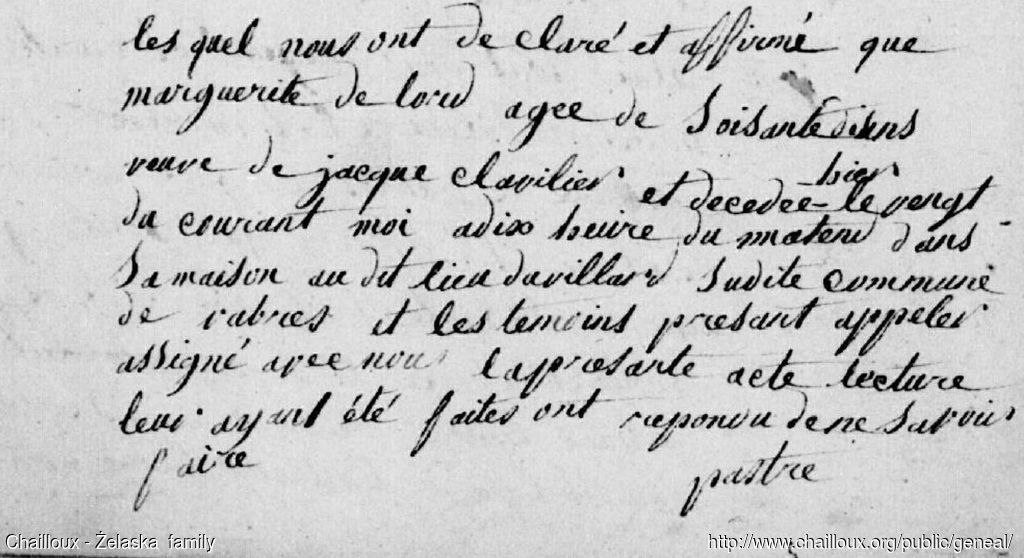 les quel nous ont de claré et affirmé que
marguerite de lord agee de Soisante disens
veuve de jacque clavilier et decedée hier le vengt
du courant moi a dix heure du matend dans
Sa maison au dit lieu du villard Sudite commune
de vabres et les temoins presant appeler
assigné avec nous la presante acte lecture
leur ayant été faites ont repondu de ne Savoir
faire pastre
Chailloux - Żelaska family http://www.chailloux.org/public/geneal/